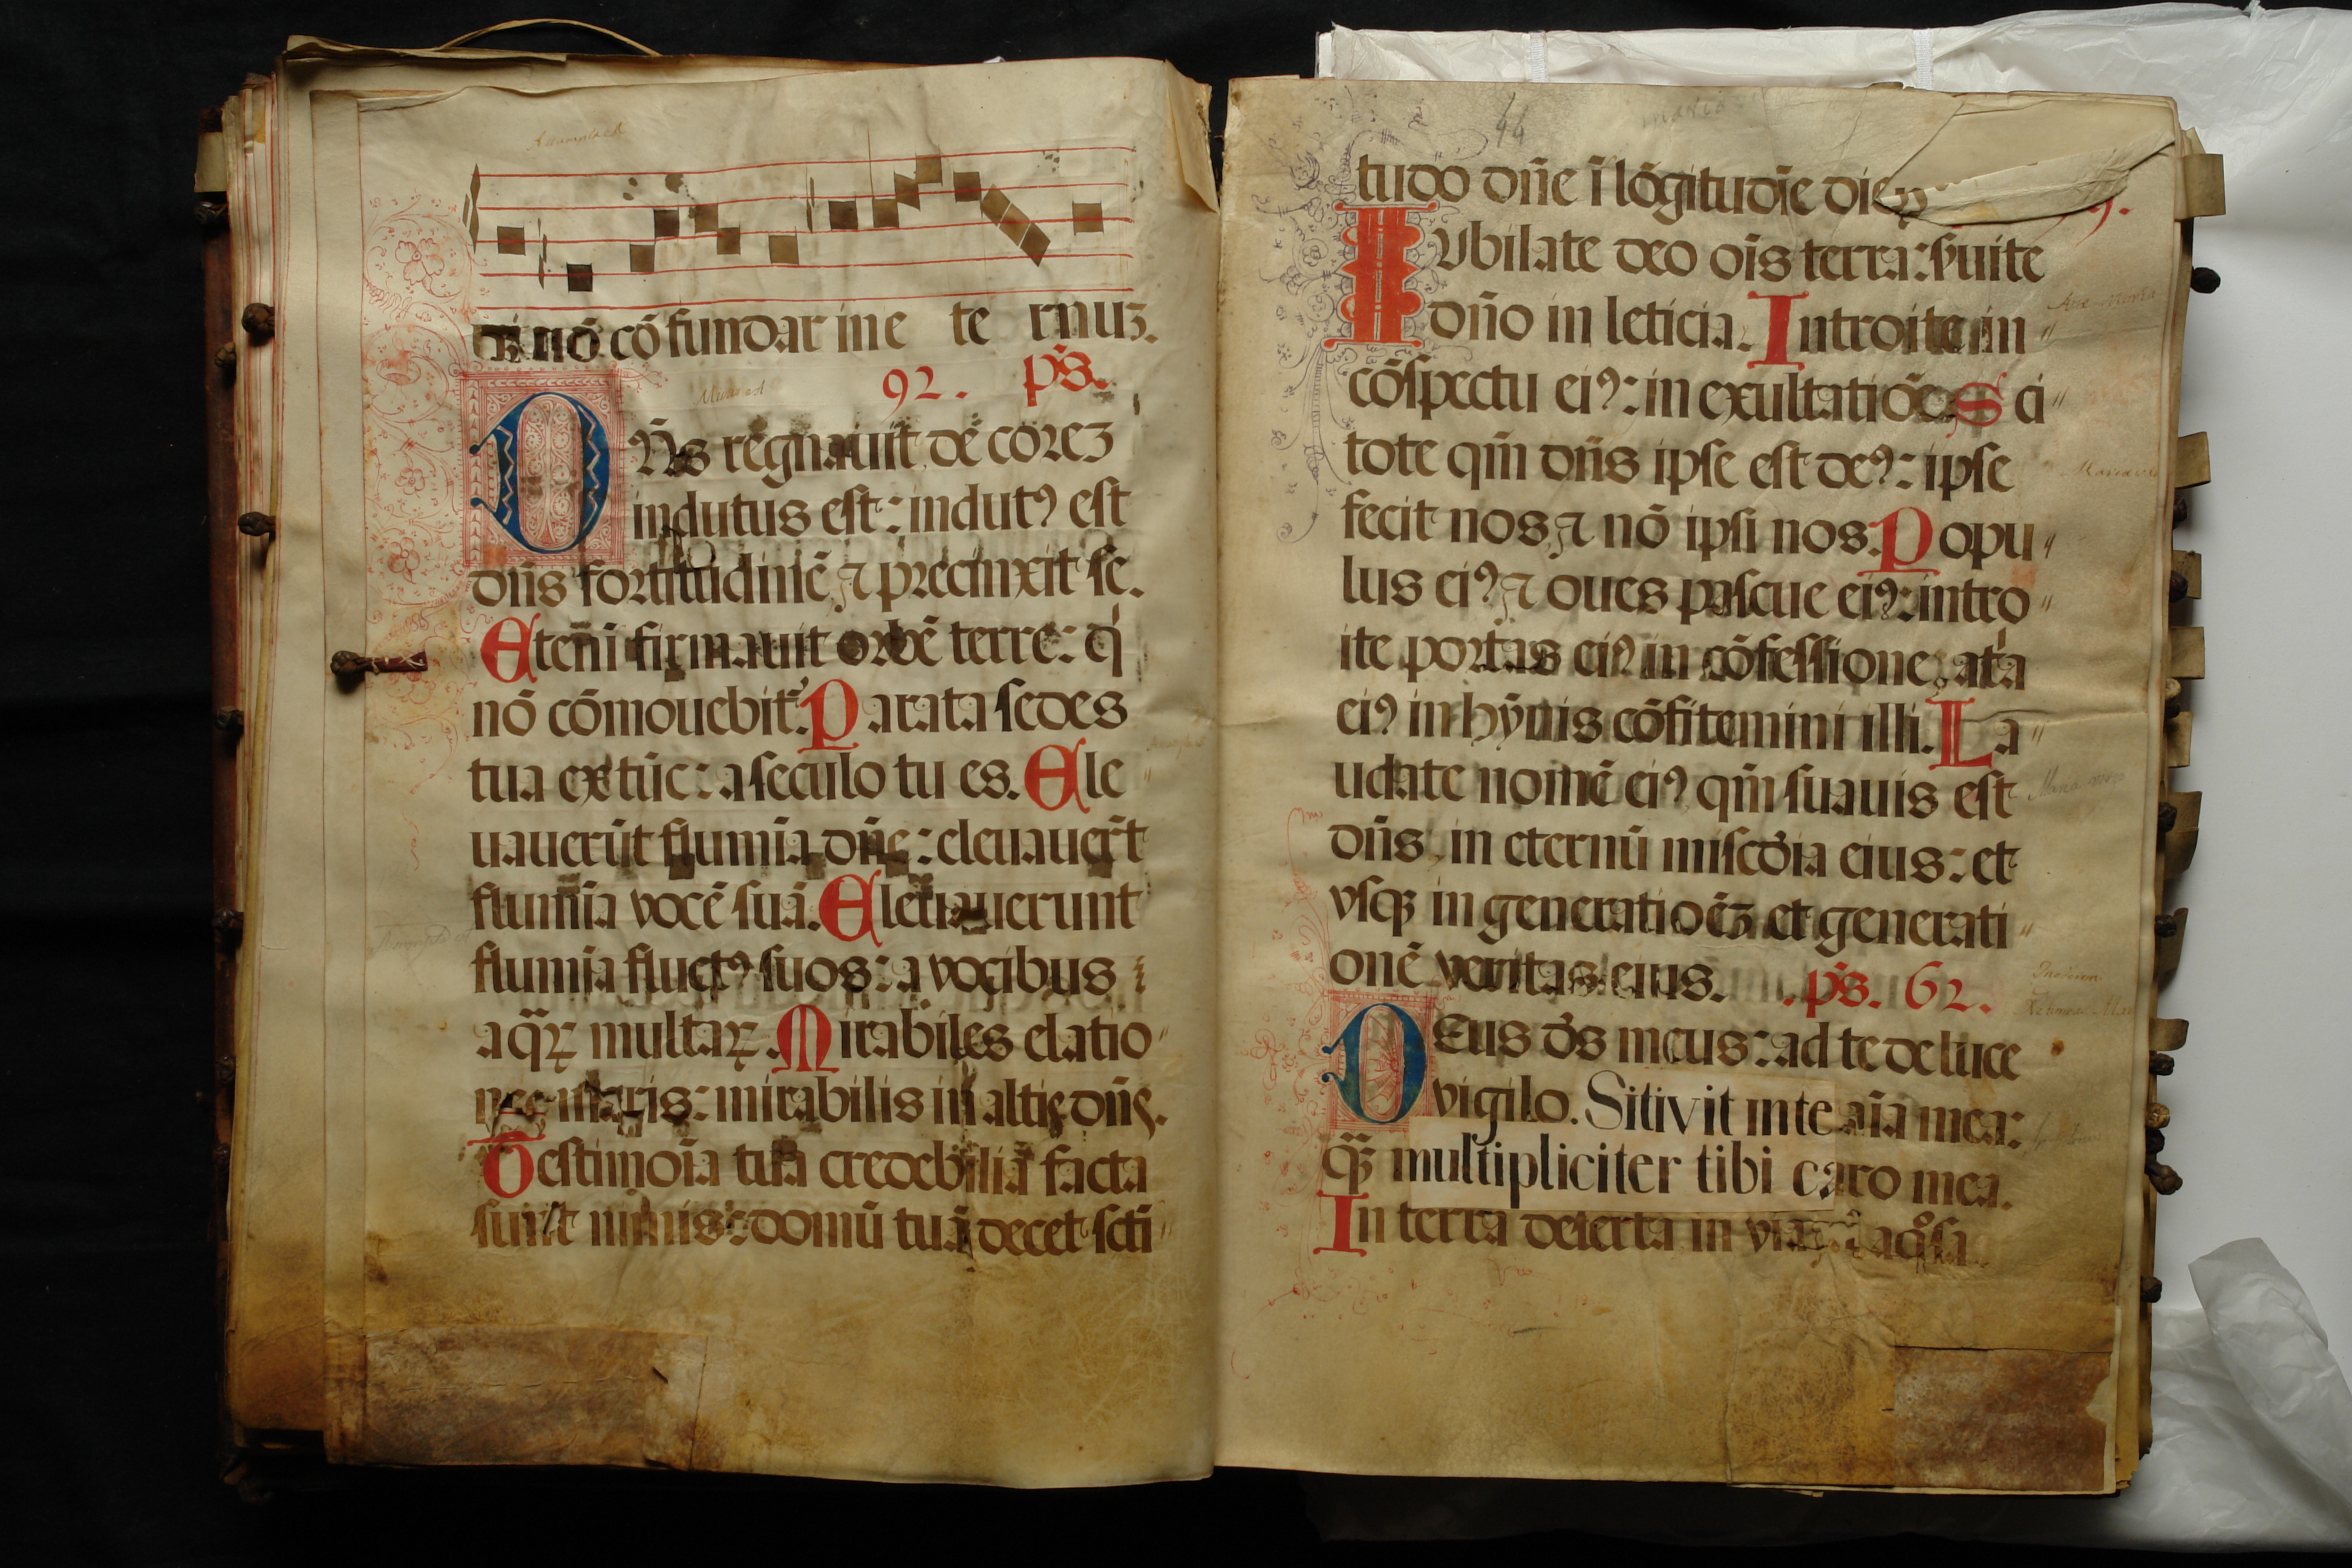 nō cō fundar in e te rnuꝫ.
92. p̄s.
DN̄s regnauit decoreꝫ
indutus est: indutꝰ est
dn̄s fortitudinē ⁊ precinxit se.
Eteni firmauit orbē terre: q
nō cōmouebit᷑. Parata sedes
tua ex tūc: a seculo tu es. Ele
uauerūt flumīa dn̄e: eleuauer̄t
flumīa vocē suā. Eleuauerunt
flumīa fluctꝰ suos: a vocibus
aq̄ꝝ multaꝝ. Mirabiles elatio
nes maris: mirabilis in altis dn̄s.
Testimoīa tua credebilia facta
sunt nimis: domū tuā decet scti
44
tudo dn̄e ī lōgitudīe dieꝝ
IUbilate deo oīs terra: s̄uite
dn̄o in leticia. Introite in
cōspectu eiꝰ: in exultatiōe. Sci
tote qm̄ dn̄s ipse est deꝰ: ipse
fecit nos ⁊ nō ipsi nos. Popu
lus eiꝰ ⁊ oues pascue eiꝰ: intro
ite portas eiꝰ in cōfessione, at'a
eiꝰ in hȳnis cōfitemini illi. La
udate nomē eiꝰ qm̄ suauis est
dn̄s, in eternū miscd̄ia eius: et
vsqꝫ in generatiōeꝫ et generati
onē veritas eius. .p̄s. 62.
DEus d̄s meus: ad te de luce
vigilo. Sitivit in te aīa mea:
q̄ꝫ multipliciter tibi caro mea.
In terra deserta in via aqͦsa
Ave Maria